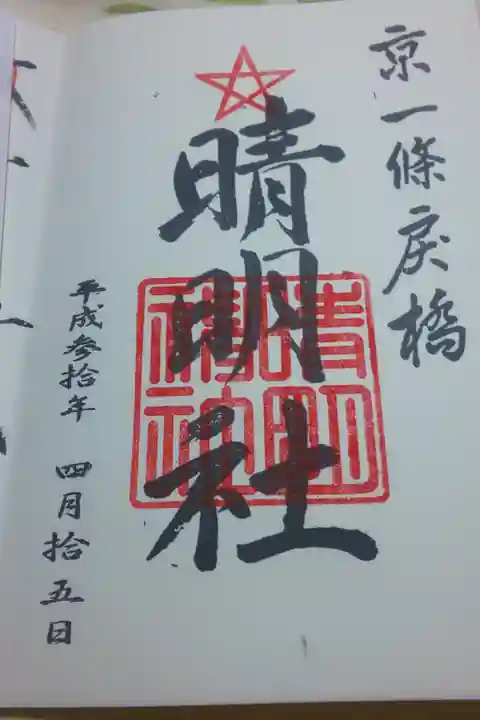 京一條戻橋
晴明社
晴明神社
平成参拾年 四月拾五日